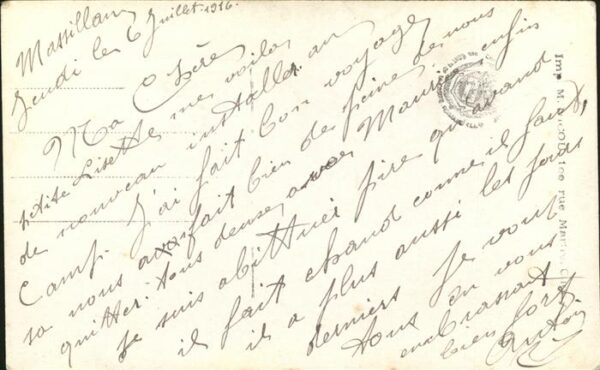 Massillan
Jeudi les 6 Juillet 1916.
Ma Chère
petite Lisette me voilas
de nouveau installer au
Camp. J'ai fait bon voyage
sa nous fait bien des peine de nous
quitter. tous deux, avec Maurice enfin
Je suis abittuer pire quavand
il fait chaud comme il faut,
il a plus aussi les jours
derniers Je vous
tous en vous
embrassant
bien fort
Imp. M. rue